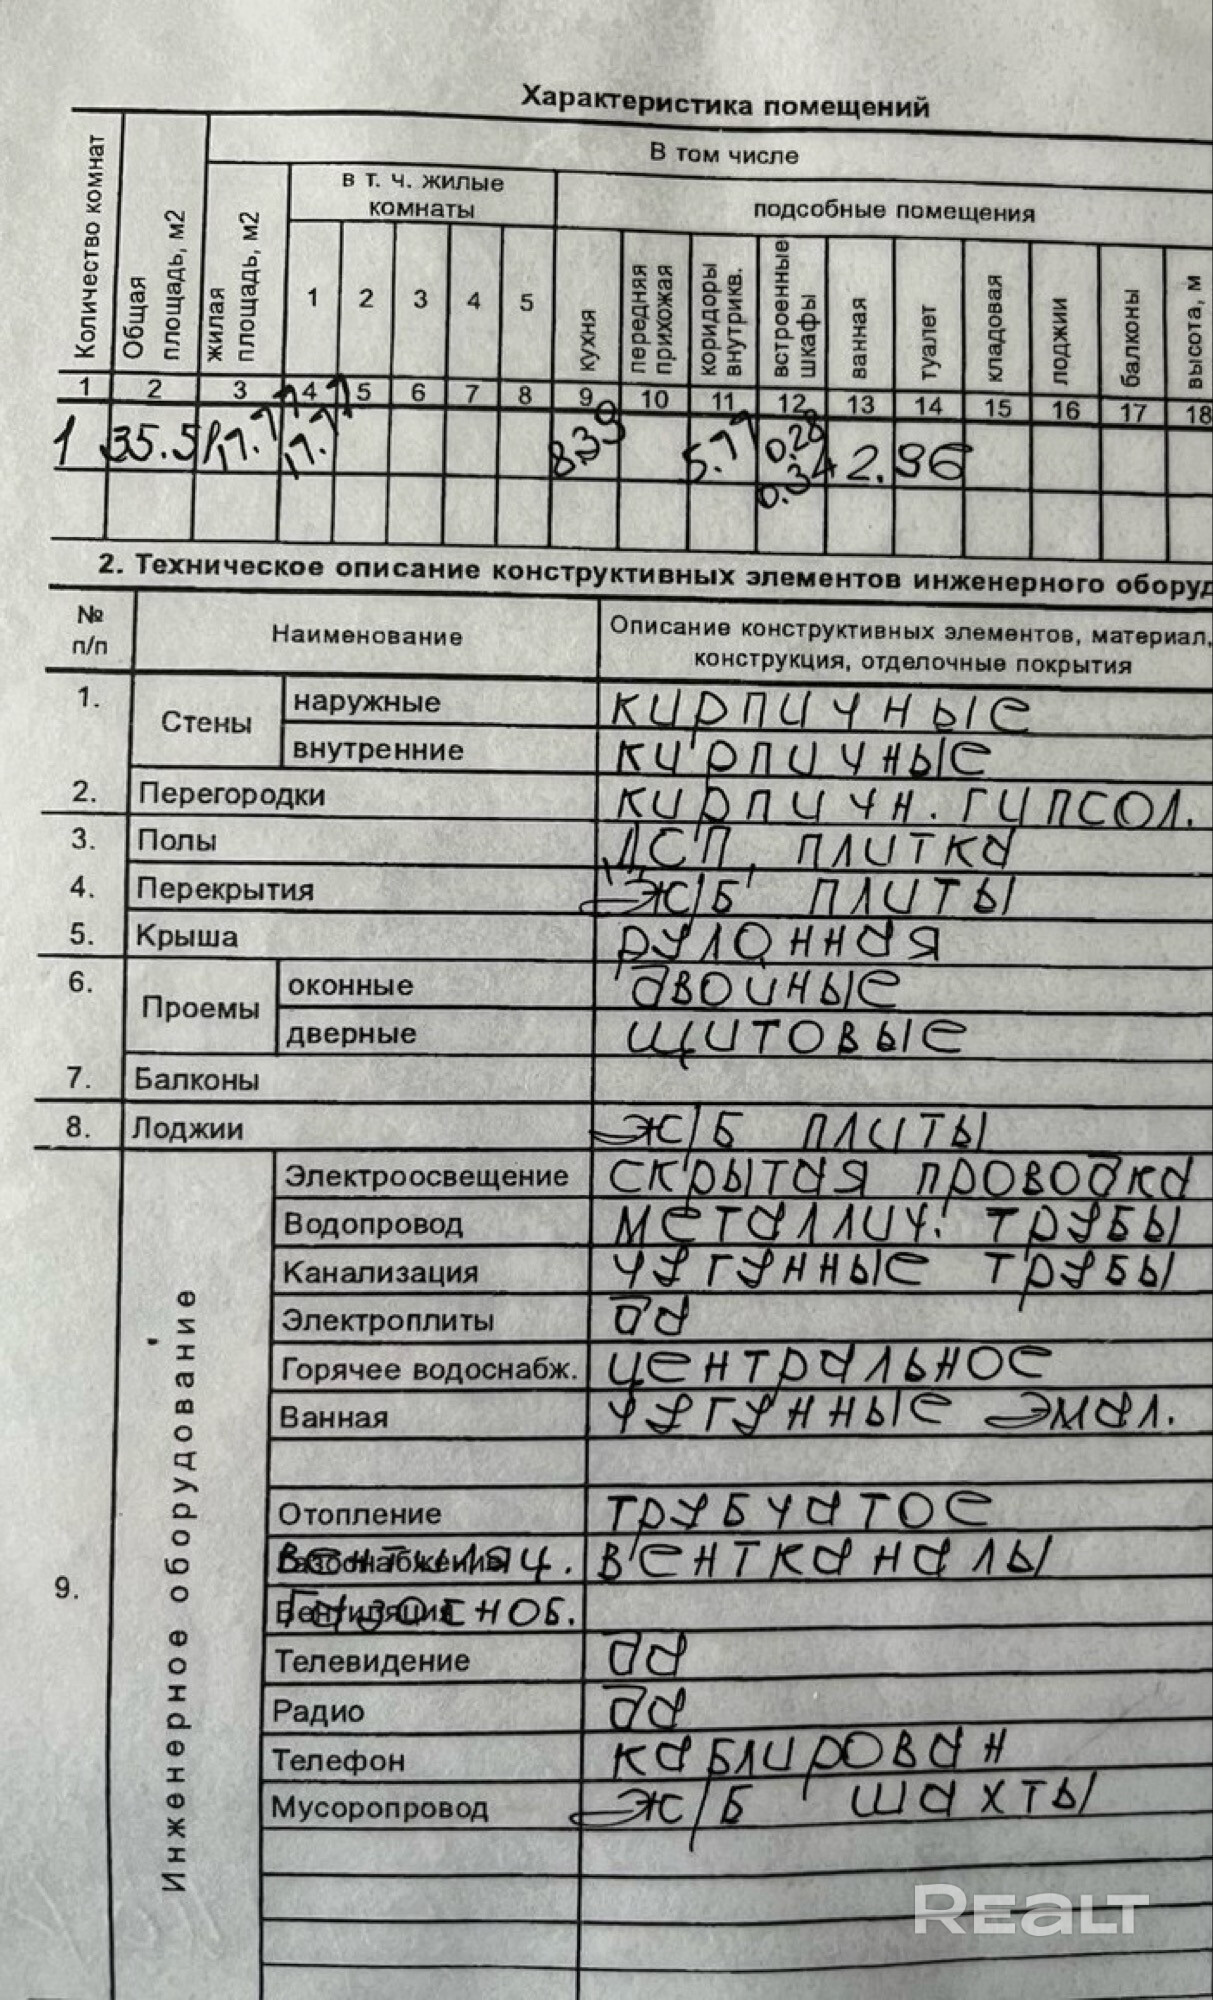 Характеристика помещений
Количество комнат
Общая площадь, м2
В том числе
жилая площадь, м2
в т. ч. жилые комнаты
подсобные помещения
1 2 3 4 5
кухня
передняя прихожая
коридоры внутрикв.
встроенные шкафы
ванная
туалет
кладовая
лоджии
балконы
высота, м
1 2 3 4 5 6 7 8 9 10 11 12 13 14 15 16 17 18
1 35.5 17.77 17.77 8.39 5.77 0.28 2.96
0.34
2. Техническое описание конструктивных элементов инженерного оборуд
№ п/п
Наименование
Описание конструктивных элементов, материал,
конструкция, отделочные покрытия
1. Стены наружные кирпичные
внутренние кирпичные
2. Перегородки кирпичн. гипсол.
3. Полы ДСП, плитка
4. Перекрытия ж/б плиты
5. Крыша рулонная
6. Проемы оконные двойные
дверные щитовые
7. Балконы
8. Лоджии ж/б плиты
9. Инженерное оборудование
Электроосвещение скрытая проводка
Водопровод металлич. трубы
Канализация чугунные трубы
Электроплиты да
Горячее водоснабж. центральное
Ванная чугунные эмал.
Отопление трубчатое
Газоснабжение Вентиляц. вентканалы
Вентиляция Газосноб.
Телевидение да
Радио да
Телефон каблирован
Мусоропровод ж/б шахты
Realt